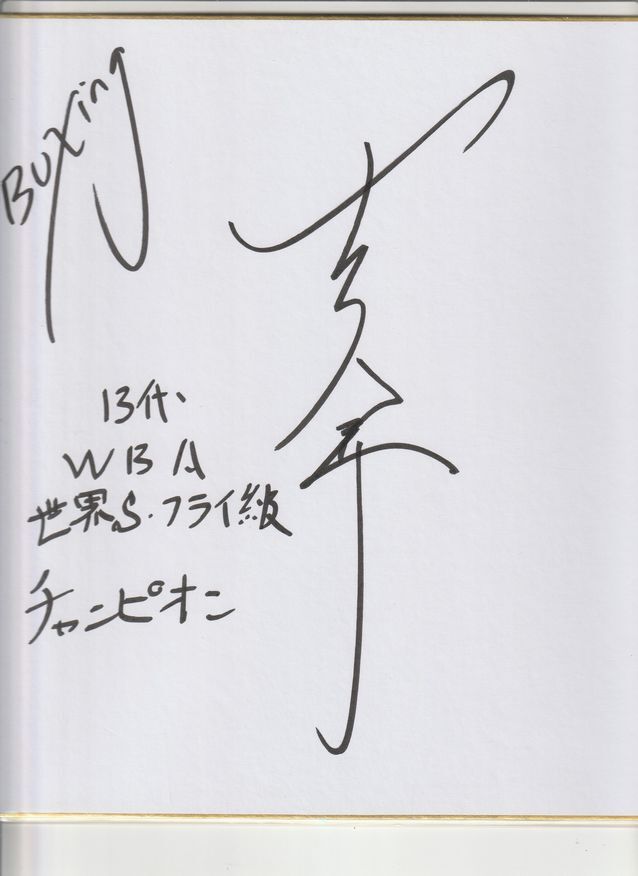 Boxing
13代
WBA
世界S.フライ級
チャンピオン